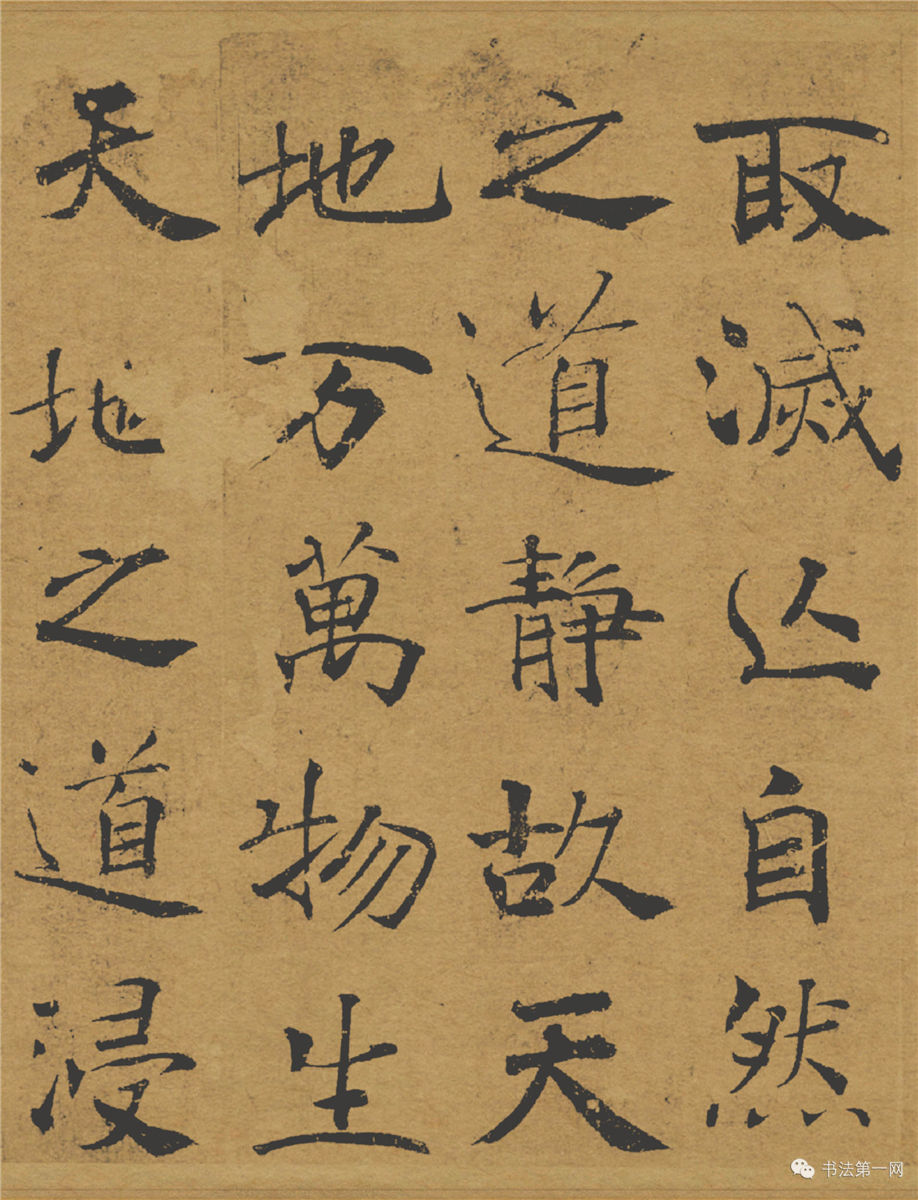 取滅亾自然
之道靜故天
地万萬物生
天地之道浸
书法第一网